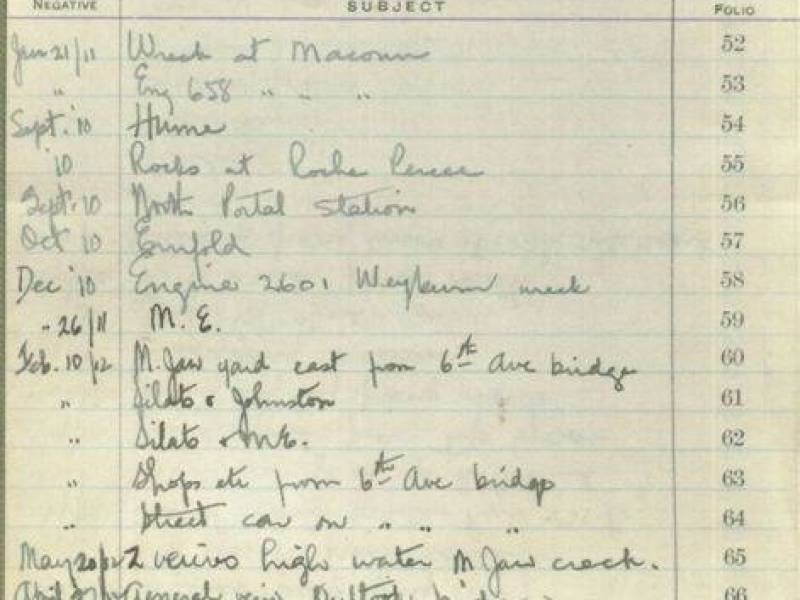 NEGATIVE SUBJECT FOLIO
Jun 21/11 Wreck at Macoun 52
" Eng 658 " " " 53
Sept. '10 Hume 54
'10 Rocks at Roche Percee 55
Sept. 10 North Portal station 56
Oct 10 Ernfold 57
Dec '10 Engine 2601 Weyburn wreck 58
" 26/11 M. E. 59
Feb. 10/12 M. Jaw yard east from 6th Ave bridge 60
" & Johnston 61
" & M E. 62
" Shops etc from 6th Ave bridge 63
" Street car on " " " 64
May 20/12 2 views high water M Jaw creek. 65
April General view 66